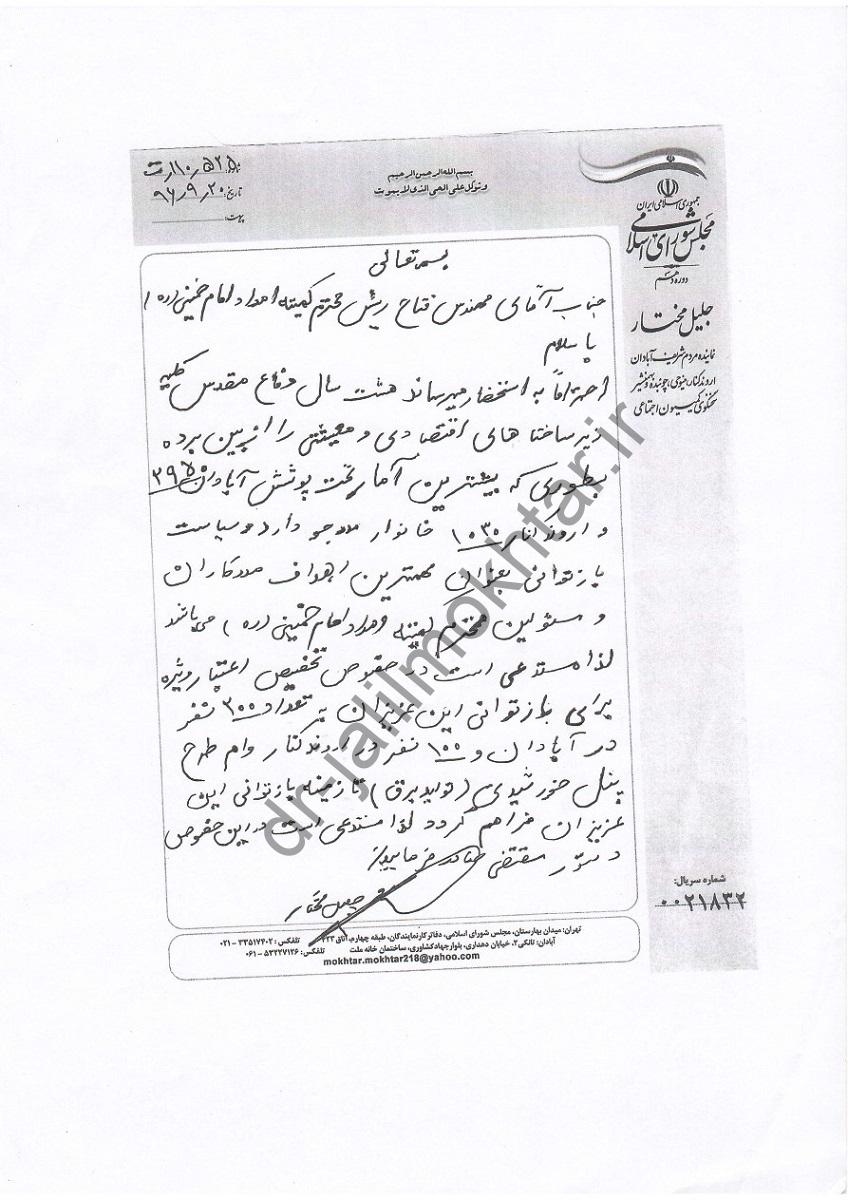 بسم الله الرحمن الرحیم
و توکل علی الحی الذی لا یموت
تاریخ: ۹۶٫۹٫۲۰
پیوست:
جمهوری اسلامی ایران
مجلس شورای اسلامی
دوره دهم
جلیل مختار
نماینده مردم شریف آبادان
اروندکنار، منیوحی، چوئبده و بهمنشیر
سخنگوی کمیسیون اجتماعی
بسمه تعالی
جناب آقای مهندس فتاح ریئس محترم کمیته امداد امام خمینی (ره)
با سلام
احتراماً به استحضار میرساند هشت سال دفاع مقدس کلیه
زیر ساختهای اقتصادی و معیشتی را از بین برده
بطوری که بیشترین آمار تحت پوشش آبادان ۳۹۵۰
و اروندکنار ۱۰۳۰ خانوار مددجو دارد و سیاست
بازتوانی بعنوان مهمترین اهداف مددکاران
و مسئولین محترم کمیته امداد امام خمینی (ره) می باشد
لذا مستدعی است در خصوص تخصیص اعتبار ویژه
برای بازتوانی این عزیزان به تعداد ۳۰۰ نفر
در آبادان و ۱۰۰ نفر در اروندکنار وام طرح
پنل خورشیدی (تولید برق) تا زمینه بازتوانی این
عزیزان فراهم گردد لذا مستدعی است در این خصوص
دستور مقتضی صادر فرمایید
جلیل مختار
شماره سریال:
۰۰۲۱۸۳۲
تهران: میدان بهارستان، مجلس شورای اسلامی، دفاتر کار نمایندگان، طبقه چهارم، اتاق ۴۲۳ تلفکس: ۳۳۵۱۷۴۰۲ - ۰۲۱
آبادان: تانکی۲، خیابان دهداری، بلوار جهاد کشاورزی، ساختمان خانه ملت تلفکس: ۵۳۲۲۷۱۲۶ - ۰۶۱
mokhtar.mokhtar218@yahoo.com
dr-jalilmokhtar.ir